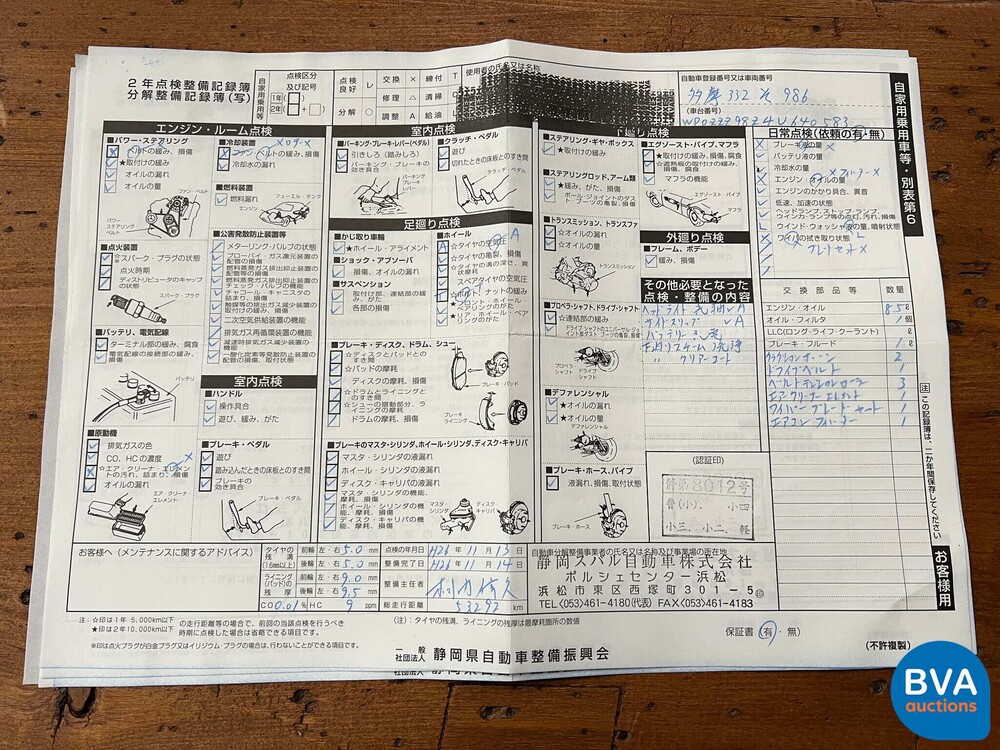 2年点検整備記録簿
分解整備記録簿(写)
自家用乗用等
点検区分
及び記号
1年
2年
点検良好 レ 交換 × 締付 T
修理 △ 清掃
分解 ○ 調整 A 給油 L
使用者の氏名又は名称
自動車登録番号又は車両番号
多摩 332 そ 986
(車台番号)
WP0ZZZ98Z4U640583
自家用乗用車等・別表第6
エンジン・ルーム点検
■パワー・ステアリング
ベルトの緩み、損傷
★取付けの緩み
オイルの漏れ
オイルの量
パワー・ステアリング・ベルト
ファン・ベルト
■点火装置
☆スパーク・プラグの状態
点火時期
ディストリビュータのキャップの状態
スパーク・プラグ
■バッテリ、電気配線
ターミナル部の緩み、腐食
電気配線の接続部の緩み、損傷
バッテリ
■原動機
排気ガスの色
CO、HCの濃度
☆エア・クリーナ・エレメントの汚れ、詰まり、損傷
オイルの漏れ
エア・クリーナ エレメント
■冷却装置
ファン・ベルトの緩み、損傷
冷却水の漏れ
■燃料装置
燃料漏れ
フューエル・タンク
エンジン
■公害発散防止装置等
メターリング・バルブの状態
ブローバイ・ガス還元装置の配管の損傷
燃料蒸発ガス排出抑止装置の配管等の損傷
燃料蒸発ガス排出抑止装置のチェック・バルブの機能
チャコール・キャニスタの詰まり、損傷
触媒等の排出ガス減少装置の取付けの緩み、損傷
二次空気供給装置の機能
排気ガス再循環装置の機能
減速時排気ガス減少装置の機能
一酸化炭素等発散防止装置の配管の損傷、取付状態
室内点検
■ハンドル
操作具合
遊び、緩み、がた
■ブレーキ・ペダル
遊び
踏み込んだときの床板とのすき間
ブレーキの効き具合
ブレーキ・ペダル
室内点検
■パーキング・ブレーキ・レバー(ペダル)
引きしろ(踏みしろ)
パーキング・ブレーキの効き具合
パーキング・ブレーキ・レバー
■クラッチ・ペダル
遊び
切れたときの床板とのすき間
クラッチ・ペダル
足廻り点検
■かじ取り車輪
★ホイール・アライメント
■ショック・アブソーバ
損傷、オイルの漏れ
■サスペンション
取付部、連結部の緩み、がた
各部の損傷
■ホイール
☆タイヤの空気圧
☆タイヤの亀裂、損傷
☆タイヤの溝の深さ、異状摩耗
スペアタイヤの空気圧
■ブレーキ・ディスク、ドラム、シュー
☆ディスクとパッドとのすき間
☆パッドの摩耗
ディスクの摩耗、損傷
☆ドラムとライニングとのすき間
☆シューの摺動部分、ライニングの摩耗
ドラムの摩耗、損傷
ブレーキ・パッド
ブレーキ・ライニング
■ブレーキのマスタ・シリンダ、ホイール・シリンダ、ディスク・キャリパ
マスタ・シリンダの液漏れ
ホイール・シリンダの液漏れ
ディスク・キャリパの液漏れ
マスタ・シリンダの機能、摩耗、損傷
ホイール・シリンダの機能、摩耗、損傷
ディスク・キャリパの機能、摩耗、損傷
マスタ・シリンダ
ディスク・キャリパ
下廻り点検
■ステアリング・ギヤ・ボックス
★取付けの緩み
■ステアリングのロッド、アーム類
★緩み、がた、損傷
ボール・ジョイントのダスト・ブーツの亀裂、損傷
■トランスミッション、トランスファ
☆オイルの漏れ
☆オイルの量
トランスミッション
■プロペラ・シャフト、ドライブ・シャフト
☆連結部の緩み
ドライブ・シャフトのユニバーサル・ジョイント部ダスト・ブーツの亀裂、損傷
プロペラ・シャフト
ドライブ・シャフト
■デファレンシャル
★オイルの漏れ
★オイルの量
デファレンシャル
■ブレーキ・ホース、パイプ
液漏れ、損傷、取付状態
ブレーキ・ホース
■エグゾースト・パイプ、マフラ
★取付けの緩み、損傷、腐食
☆遮熱板の取付けの緩み、損傷、腐食
マフラの機能
エグゾースト・パイプ
マフラ
外廻り点検
■フレーム、ボデー
緩み、損傷
その他必要となった点検・整備の内容
ヘッドライト 光軸 レ A
サイドスリップ レ A
(認証印)
静第8072号
小四
小三 小二 軽
日常点検(依頼の有・無)
ブレーキ液の量
バッテリ液の量
冷却水の量
エンジン・オイルの量
エンジンのかかり具合、異音
低速、加速の状態
ウインド・ウォッシャ液の量、噴射状態
ワイパの拭き取り状態
交換部品等 数量
エンジン・オイル 8.5 ℓ
オイル・フィルタ 1 個
LLC(ロング・ライフ・クーラント) ℓ
ブレーキ・フルード 1 ℓ
クラクションホーン 2
ドライブベルト 1
ベルトテンションローラー 3
エアークリーナーエレメント 1
ワイパーブレードセット 1
エアコンフィルター 1
注)この記録簿は、二か年間保存してください。
お客様用
お客様へ(メンテナンスに関するアドバイス)
タイヤの残溝(1.6mm以上) 前輪 左・右 5.0 mm
後輪 左・右 5.0 mm
ライニング(パッド)の残厚 前輪 左・右 9.0 mm
後輪 左・右 9.5 mm
CO 0.01 % HC 9 ppm
点検の年月日 H26 年 11 月 13 日
整備完了日 H26 年 11 月 14 日
整備主任者
総走行距離 53292 km
自動車分解整備事業者の氏名又は名称及び事業場の所在地
静岡スバル自動車株式会社
ポルシェセンター浜松
浜松市東区西塚町301-5
TEL〈053〉461-4180(代表) FAX〈053〉461-4183
注:☆印は1年5,000km以下
★印は2年10,000km以下
の走行距離等の場合で、前回の当該点検を行うべき時期に点検した場合は省略できる項目です。
※印は点火プラグが白金プラグ又はイリジウム・プラグの場合は、行わないことができる項目です。
(注):タイヤの残溝、ライニングの残厚は最摩耗箇所の数値
保証書(有・無)
一般社団法人 静岡県自動車整備振興会
(不許複製)
BVA
auctions